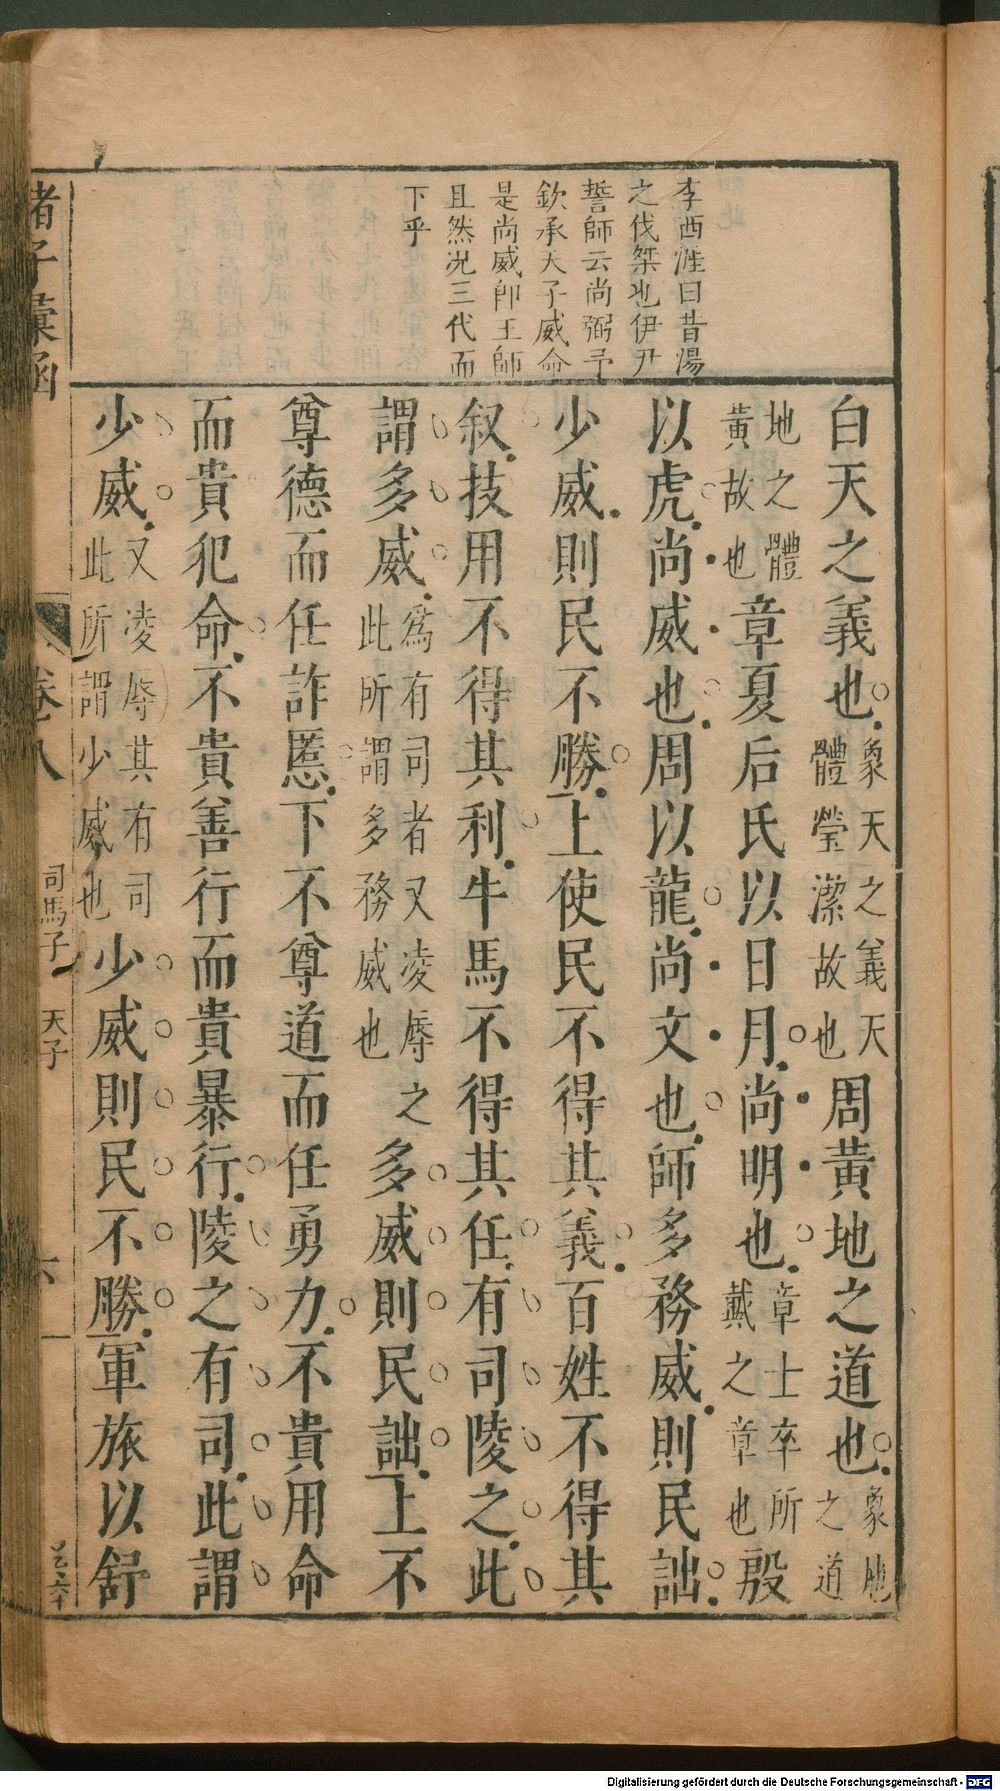 李西涯曰昔湯
之伐桀也伊尹
誓師云尚弼予
欽承天子威命
是尚威卽王師
且然况三代而
下乎
白天之義也象天之義天體瑩潔故也周黃地之道也象地之道
地之體黃故也章夏后氏以日月尚明也章士卒所戴之章也殷
以虎尚威也周以龍尚文也師多務威則民詘
少威則民不勝上使民不得其義百姓不得其
叙技用不得其利牛馬不得其任有司陵之此
謂多威爲有司者又凌辱之此所謂多務威也多威則民詘上不
尊德而任詐慝下不尊道而任勇力不貴用命
而貴犯命不貴善行而貴暴行陵之有司此謂
少威又凌辱其有司此所謂少威也少威則民不勝軍旅以舒
諸子彙函
卷之八
司馬子 天子
六
Digitalisierung gefördert durch die Deutsche Forschungsgemeinschaft - DFG